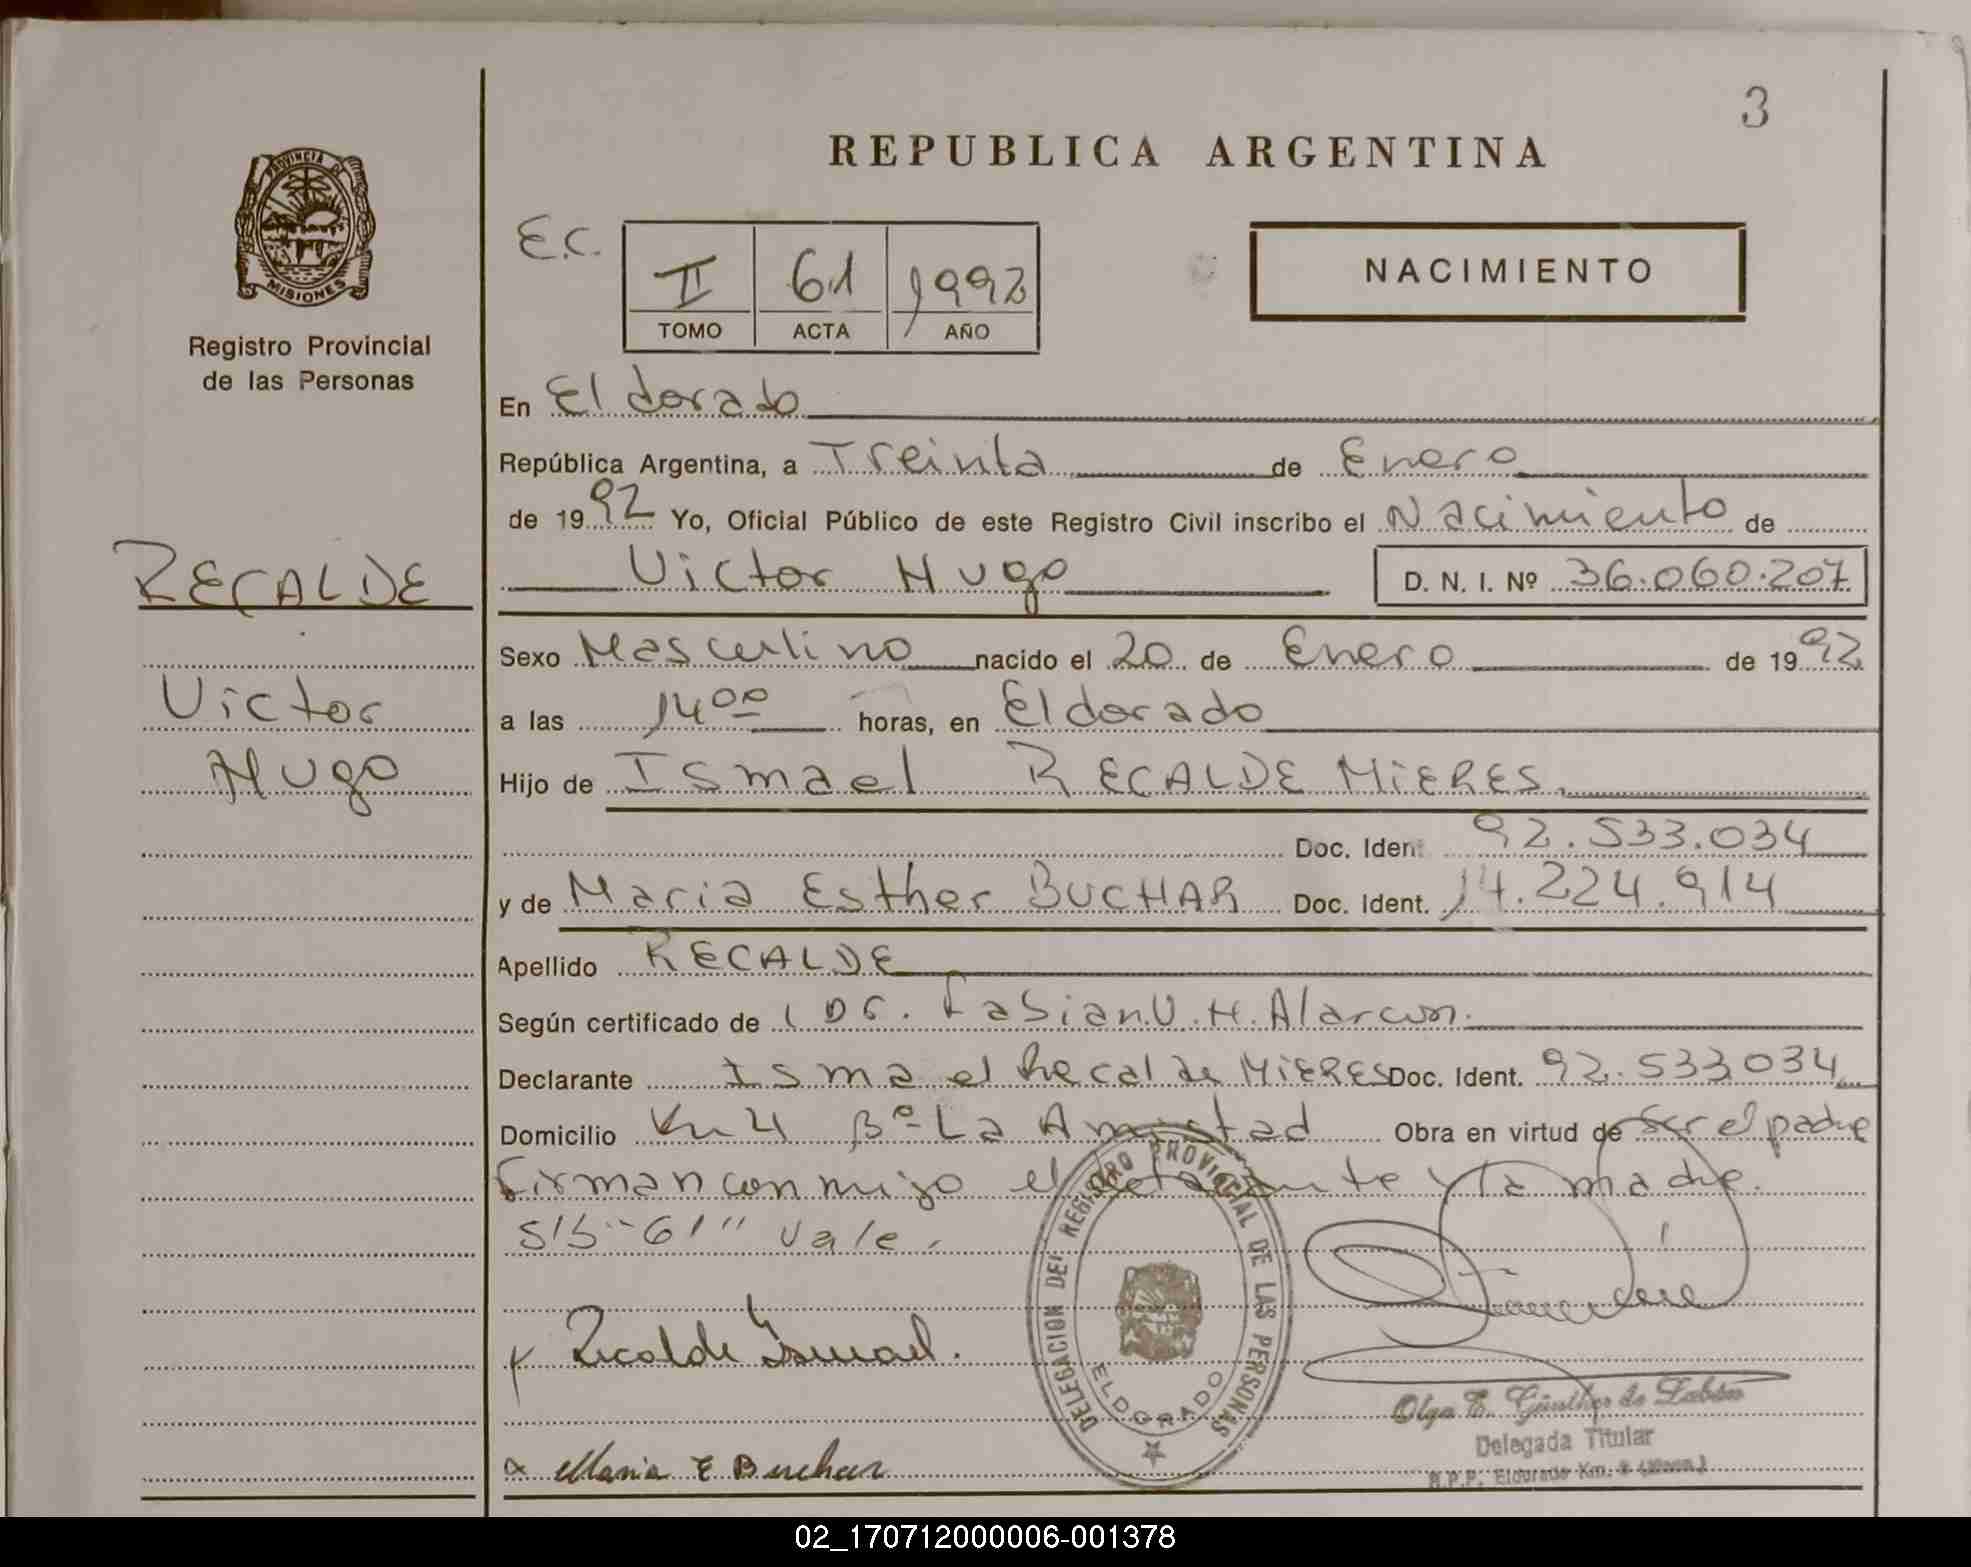 3
REPUBLICA ARGENTINA
PROVINCIA DE
MISIONES
Registro Provincial
de las Personas
E.C.
II 61 1992
TOMO ACTA AÑO
NACIMIENTO
En Eldorado
República Argentina, a Treinta de Enero
de 1992 Yo, Oficial Público de este Registro Civil inscribo el Nacimiento de
Victor Hugo D. N. I. Nº 36.060.207
RECALDE
Victor
Hugo
Sexo Masculino nacido el 20 de Enero de 1992
a las 14 00 horas, en Eldorado
Hijo de Ismael RECALDE MIERES
Doc. Ident 92.533.034
y de Maria Esther BUCHAR Doc. Ident. 14.224.914
Apellido RECALDE
Según certificado de Dr. Fabian V. H. Alarcon.
Declarante Ismael Recalde MIERES Doc. Ident. 92.533.034
Domicilio Km 4 Bº La Amistad Obra en virtud de Ser el padre
firman conmigo el y la madre.
S/b "61" Vale.
Recalde Ismael.
Maria E Buchar
DELEGACION DEL REGISTRO PROVINCIAL DE LAS PERSONAS
ELDORADO
Olga E. Günther de
Delegada Titular
R.P.P. Eldorado Km.
02_170712000006-001378